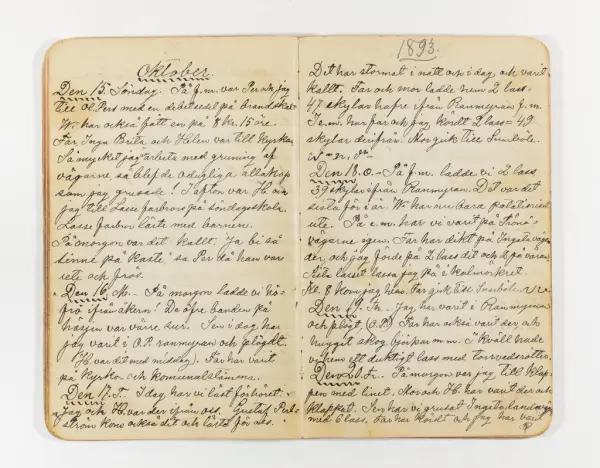 Oktober.
Den 15. Söndag. På f.m. var Per och jag
till Ol Pers med en arbetsedel på brandskatt
W. har också fått en på 8 kr. 15 öre.
Far Inga Brita och Helen var till kyrkan
Så mycket jag arbeta med grusning af
vägarne så blef de odugliga allaihop
som jag grusade! I afton var H. och
jag till Lasse farbrors på söndagsskola.
Lasse farbror läste med barnen.
På morgon var det kallt. Ja bi så
sinné på kasté sa Per då han var
ute och frös.
Den 16. M. - På morgon ladde vi hö-
frö ifrån åkern! De öfre banden på
häsjen var värre sur. Sen i dag har
jag varit i O.P. rannmyran och plöjdt.
H. var dit med middag). Far har varit
på kyrko- och komunalstämma.
Den 17. T. I dag har vi läst förhöret.
Jag och H. var der ifrån oss. Gustaf Pers
ström kom också dit och läste för oss.
1893.
Det har stormat i natt och i dag och varit
kallt. Far och mor ladde hem 2 lass =
47 skylar hafre ifrån Rannmyran f.m.
I e.m. har far och jag kördt 2 lass = 49
skylar derifrån. Mor gick till
Den 18. O. - På f.m. ladde vi 2 lass
39 skylar ifrån Rannmyran. Det var det
sista för i år. W. har nu bara potatisriset
ute. På e.m. har vi varit på
vägarne igen. Far har dikt på Ingels väga
der, och jag förde på 2 lass dit och 2 på våran
Sista lasset lassa jag på i kolmörkret
Kl. 8 kom jag hem. Far gick till
Den 19. Th. Jag har varit i Rannmyran
och plöjt, (O.P.) Far har också varit der och
huggit skog björkar m.m. I kväll hade
vi hem ett duktigt lass med torrvedsrötter.
Den 20. F. På morgon var jag till Klap
pen med linet. Mor och H. har varit der och
klappat. Sen har vi grusat Ingels landsväg
med 6 lass. Far har kördt och jag har varit